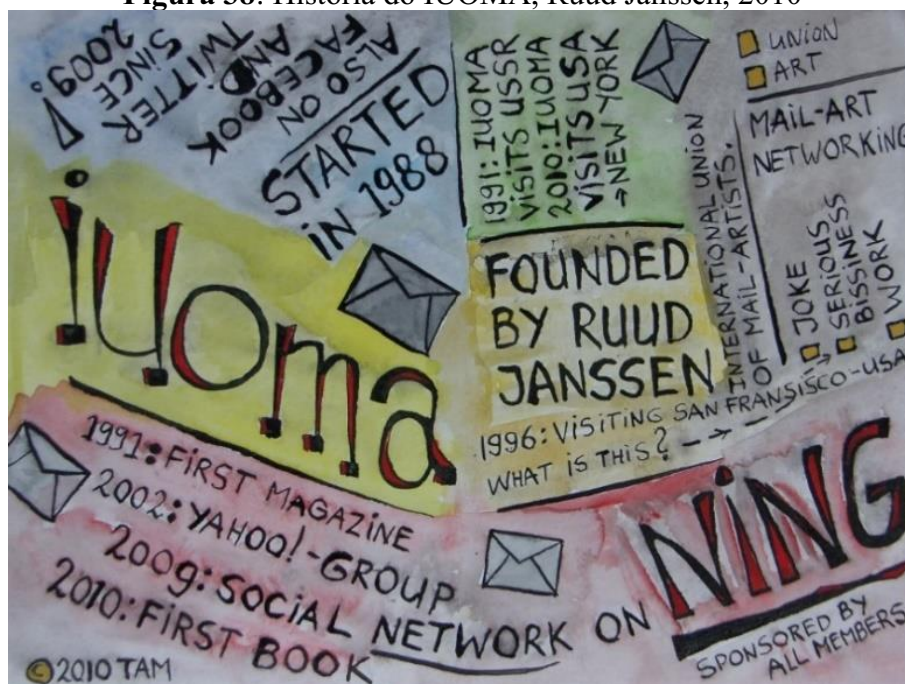 Figura 38: História do IUOMA, Ruud Janssen, 2010
ALSO ON
FACEBOOK
AND
TWITTER
SINCE
2009!
STARTED
iN 1988
1991: IUOMA
ViSiTS USSR
2010: IUOMA
ViSiTS USA
→NEW YORK
UNiON
ART
MAiL-ART
NETWORKiNG
JOKE
SERiOUS
BiSSiNESS
WORK
iNTERNATiONAL UNiON
OF MAiL-ARTiSTS.
iuoma
FOUNDED
BY RUUD
JANSSEN
1996: ViSiTiNG SAN FRANSiSCO-USA
WHAT iS THiS?
1991: FiRST MAGAZiNE
2002: YAHOO!-GROUP
2009: SOCiAL NETWORK ON NiNG
2010: FiRST BOOK
SPONSORED BY
ALL MEMBERS
©2010 TAM